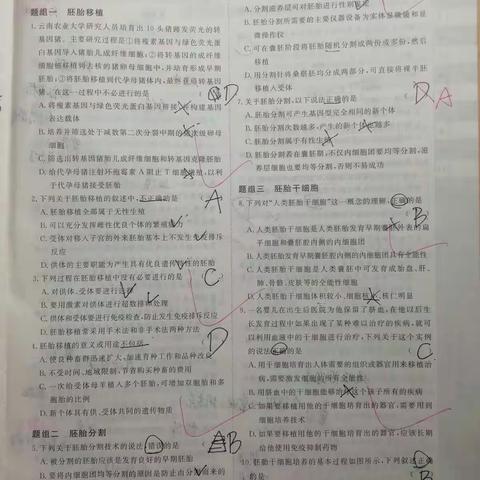 题组一 胚胎移植
1.云南农业大学研究人员培育出10头猪蹄发荧光的转
基因猪。主要研究过程是①将模素基因与绿色荧光蛋
白基因导入猪胎儿成纤维细胞,②将转基因的纤
细胞核移植到去核的猪卵母细胞中,并培育形成早期
胚胎,③将胚胎移植到代孕母猪体内,最终获得转基因
猪。在这一过程中不必进行的是 D
表达载体
B.培养并筛选处于减数第二次分裂中期的次级卵母
细胞
C.筛选出转基因猪胎儿成纤维细胞和转基因克隆胚胎
D.给代孕母猪注射环孢霉素A
于代孕母猪接受胚胎
2.下列关于胚胎移植的叙述中,不正确的是 A
A.胚胎移植全部属于无性生殖
B.可以充分发挥雌性优良个体的繁殖
C.受体对移入子宫的外来胚胎基本上不发生免疫排斥
反应
D.供体的主要职能为产生具有优良遗传特性的胚胎
3.下列过程在胚胎移植中没有必要进行的是 C
A.对供体、受体进行
B.要用激素对供体进行超数排卵处理
C.供体和受体要进行免疫检查,防止发生免疫排斥反应
D.胚胎移植常采用手术法和非手术法两种方法
4.胚胎移植的意义或用途不包括 D
A.使良种畜群迅速扩大,加速育种工作和品种改良
B.不受时间、地域限制,节省购买种畜的费用
C.一次给受体母羊植入多个胚胎,可增加双胞胎和多
胞胎的比例
D.新个体具有供、受体共同的遗传物质
题组二 胚胎分割
5.下列关于胚胎分割技术的说法,错误的是 B
A.被分割的胚胎应该是发育良好的早期胚胎
B.要将内细胞团均等分割的原因是防止由分
A.分割滋养层可对分割胚胎进行性别
B.胚胎分割所需要的主要仪器设备为实体显微镜和显
微操作仪
C.可在囊胚阶段将胚胎随机分割成两份或多份,然后
移植
D.用分割针将桑椹胚均分成两部分,可直接将裸半胚
移植入受体
7.关于胚胎分割,以下说法正确的是 A
A.胚胎分割可产生基因型完全相同的新个体
B.胚胎分割次数越多,产生的新个体也越多
C.胚胎分割属于有性生殖
D.胚胎分割若在囊胚期,不仅内细胞团要均等分割,滋
养层细胞也要均等分割,否则不易成功
题组三 胚胎干细胞
8.下列对“人类胚胎干细胞”这一概念的理解,正确的是 B
A.人类胚胎干细胞是人类胚胎发育早期
子细胞和囊胚腔内侧的内细胞团
B.人类胚胎发育早期囊胚腔内侧的内细胞团具有全能性
C.人类胚胎干细胞是人类囊胚中可发育成胎盘、肝、
肺、骨骼、皮肤等的全能性细胞
D.人类胚胎干细胞体积较小、细胞核小、核仁明显
9.一名婴儿在出生后医院为他保留了脐血,在他以后生
长发育过程中如果出现了某种难以治疗的疾病,就可
以利用血液中的干细胞进行治疗,下列关于这个实例
的说法正确的是 C
A.用干细胞培育出人体需要的组织或器官用来移植治
病,需要激发细胞的所有全能性
B.用脐血中的干细胞能够治疗这个孩子所有的疾病
C.如果要移植用他的干细胞培育出的器官,需要用到
细胞培养技术
D.如果要移植用他的干细胞培育出的器官,应该长期
给他使用免疫抑制药物
10.胚胎干细胞培养的基本过程如图所示,下列叙述正确
的是 B